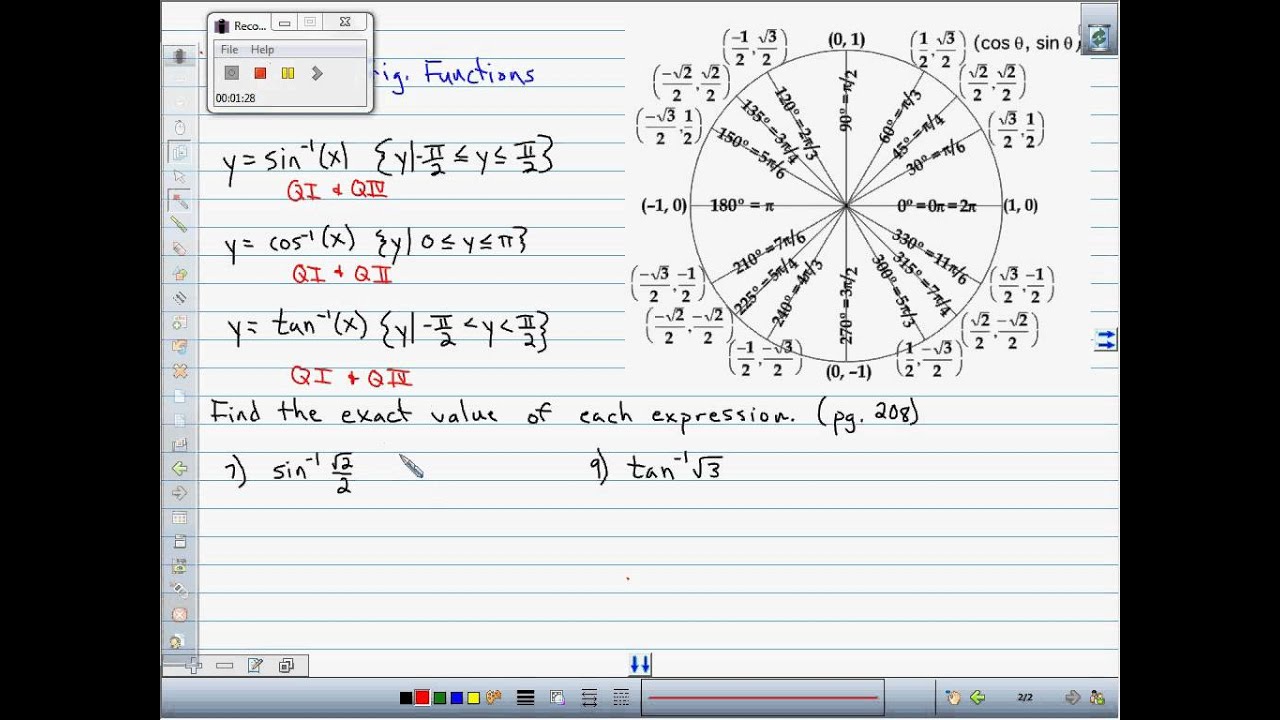 Reco...
File Help
00:01:28
ig. Functions
y = sin⁻¹(x) {y|-π/2 ≤ y ≤ π/2}
QI & QIV
y = cos⁻¹(x) {y| 0 ≤ y ≤ π}
QI & QII
y = tan⁻¹(x) {y|-π/2 < y < π/2}
QI & QIV
(0, 1)
(cos θ, sin θ)
(-1/2, √3/2)
(1/2, √3/2)
(-√2/2, √2/2)
(√2/2, √2/2)
(-√3/2, 1/2)
(√3/2, 1/2)
120° = 2π/3
90° = π/2
60° = π/3
135° = 3π/4
45° = π/4
150° = 5π/6
30° = π/6
(–1, 0)
180° = π
0° = 0π = 2π
(1, 0)
210° = 7π/6
330° = 11π/6
225° = 5π/4
315° = 7π/4
240° = 4π/3
270° = 3π/2
300° = 5π/3
(-√3/2, -1/2)
(√3/2, -1/2)
(-√2/2, -√2/2)
(√2/2, -√2/2)
(-1/2, -√3/2)
(1/2, -√3/2)
(0, –1)
Find the exact value of each expression. (pg. 208)
7) sin⁻¹ √2/2
9) tan⁻¹ √3
2/2